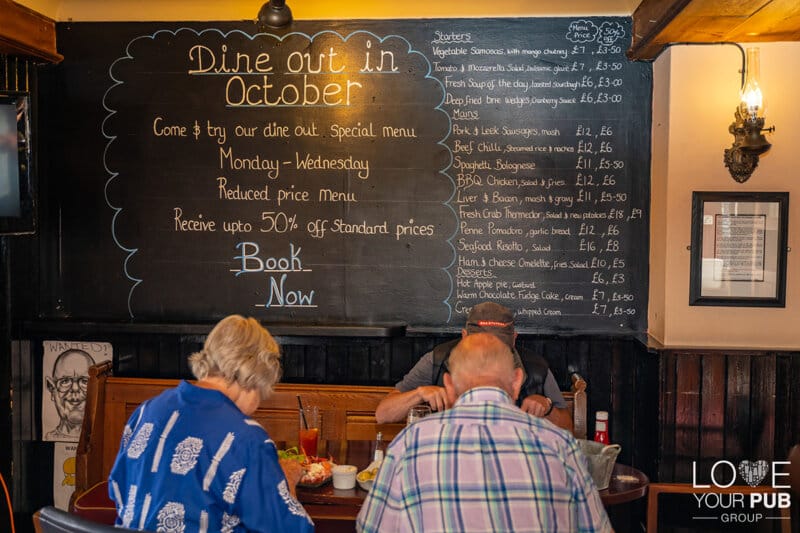 Dine out in
October
Come & try our dine out special menu
Monday - Wednesday
Reduced price menu
Receive upto 50% off Standard prices
Book
Now
Menu Price
50% off
Starters
Vegetable Samosas, with mango chutney £7, £3-50
Tomato & Mozzerella Salad, balsamic glaze £7, £3-50
Fresh Soup of the day, toasted sourdough £6, £3-00
Deep fried brie wedges, Cranberry Sauce £6, £3-00
Mains
Pork & Leek Sausages, mash £12, £6
Beef Chilli, Steamed rice & nachos £12, £6
Spaghetti Bolognese £11, £5-50
BBQ Chicken, Salad & fries £12, £6
Liver & Bacon, mash & gravy £11, £5-50
Fresh Crab Thermedor, Salad & new potatoes £18, £9
Penne Pomodoro, garlic bread £12, £6
Seafood Risotto, Salad £16, £8
Ham & Cheese Omelette, fries, Salad £10, £5
Desserts
Hot Apple pie, Custard £6, £3
Warm Chocolate Fudge Cake, cream £7, £3-50
whipped Cream £7, £3-50
WANTED
LOVE
YOUR PUB
GROUP